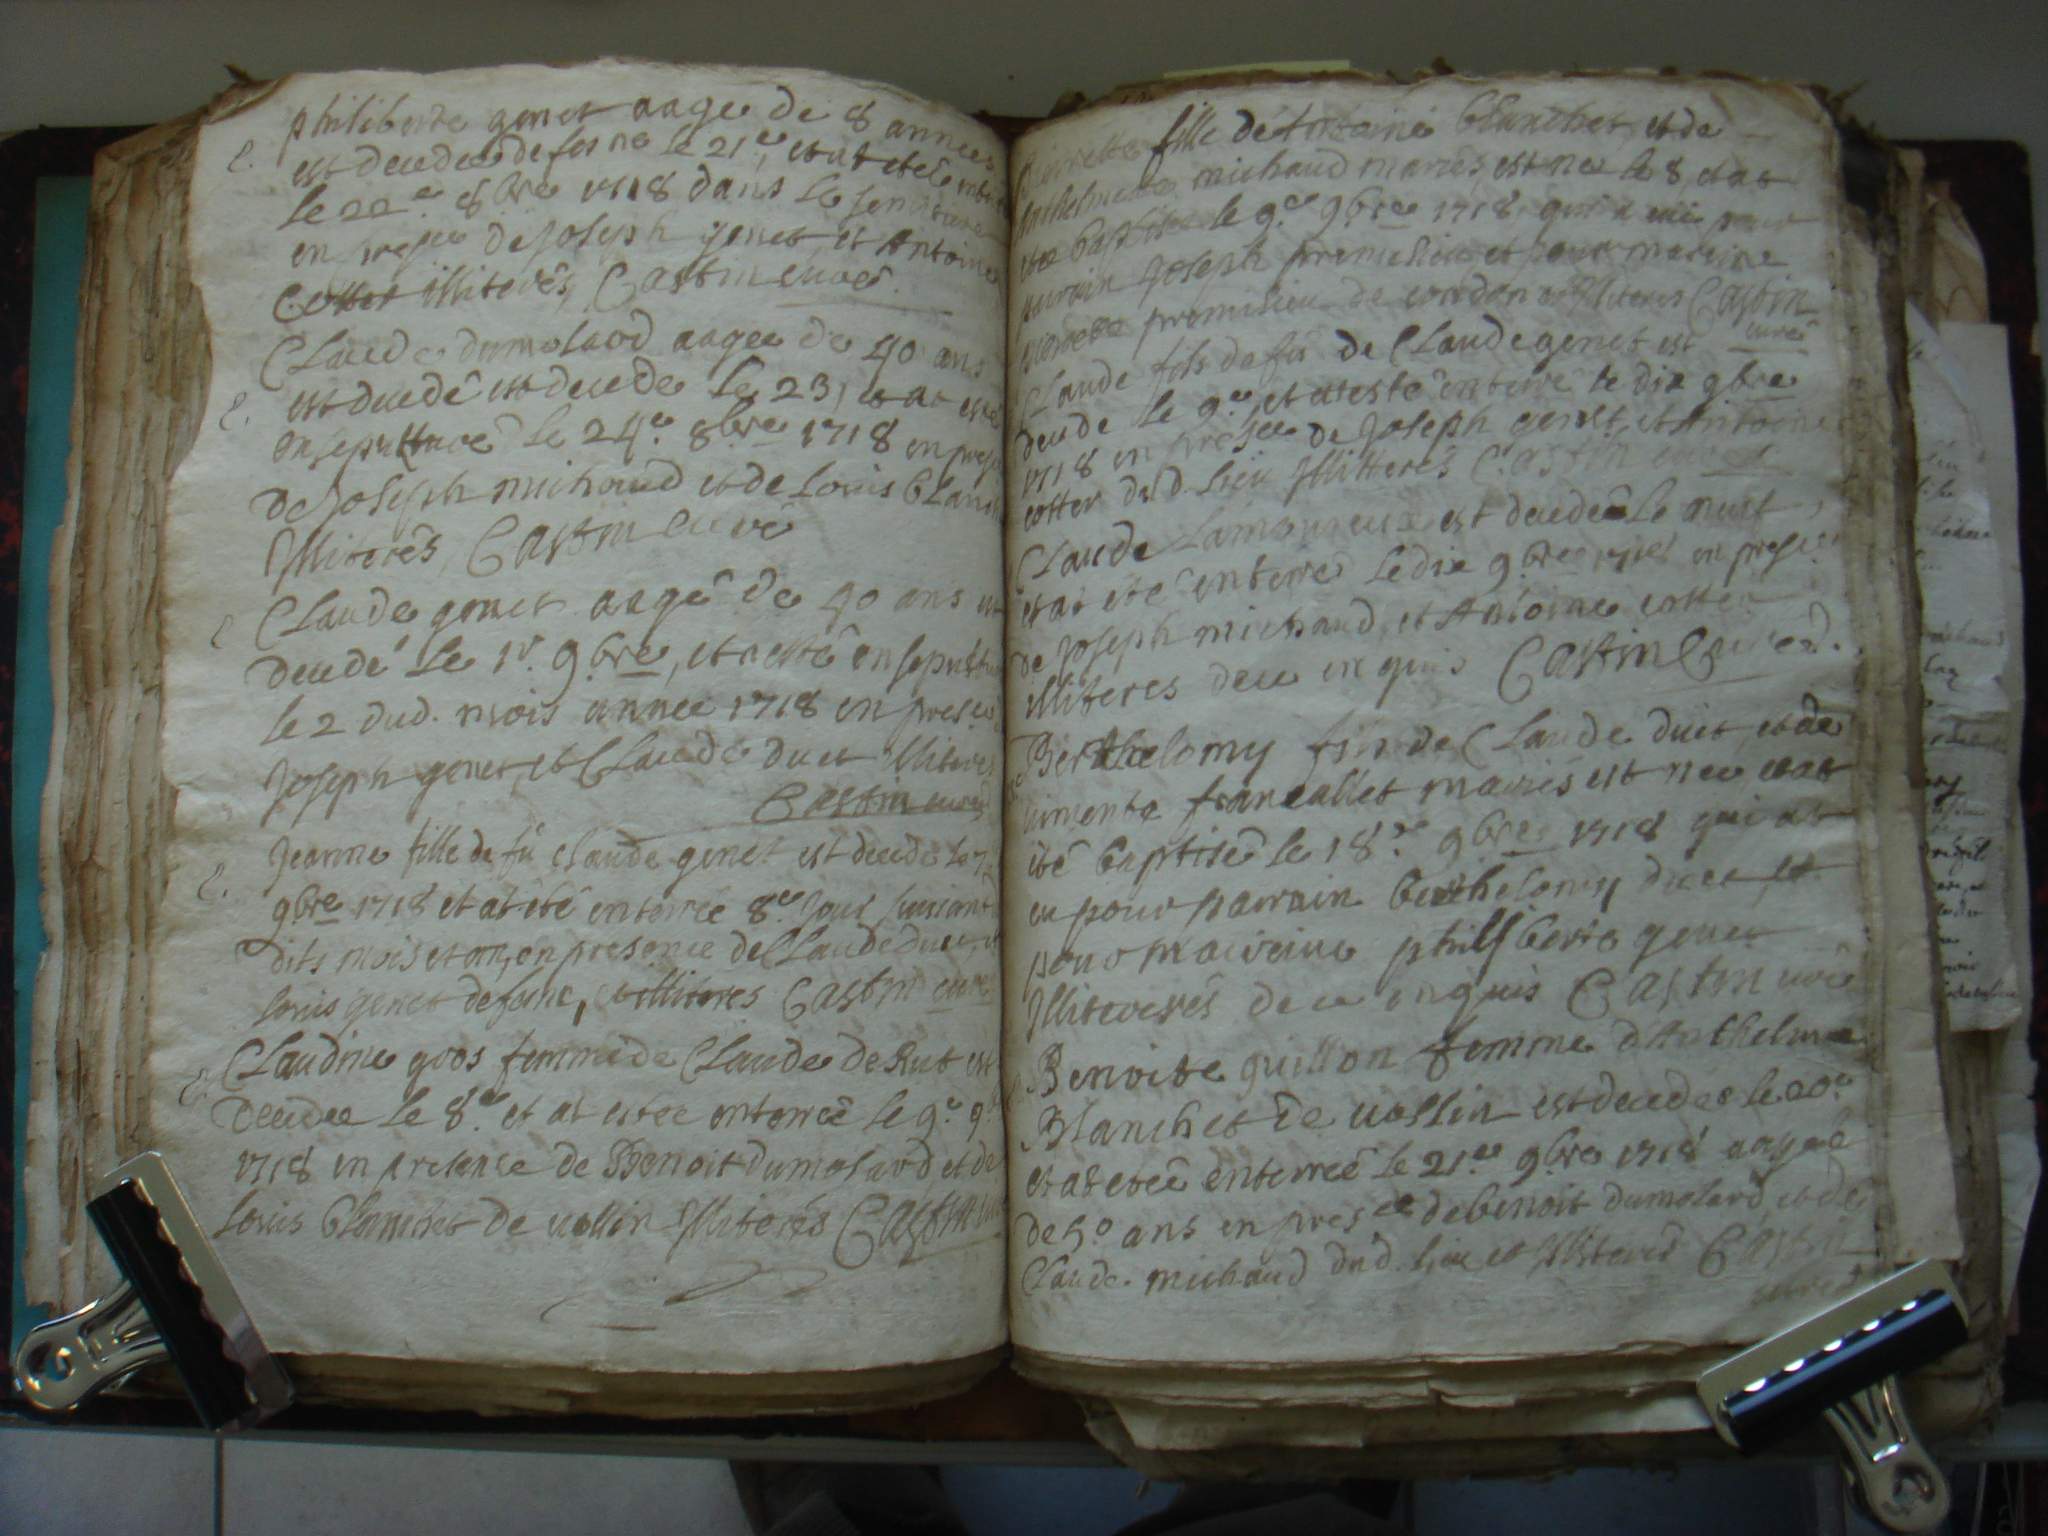 philiberte genet aagee de 8 annees
e. est decedee de fesne le 21e, et at eté
le 22e 8bre 1718 dans le
en presce de Joseph genet et Antoine
Cotter illiterés, Castin curé
Claude dumolard aagee de 40 ans
est decedé est decede le 23, et at esté
e. ensepulturé le 24e 8bre 1718 en presce
de Joseph michaud et de Louis Blanch
Illiterés, Castin curé
e Claude genet aagé de 40 ans est
decedé le 1r 9bre, et at esté ensepultu
le 2 dud. mois annee 1718 en presce
Joseph genet, et Claude duet illiteres
Castin curé
Jeanne fille de fû claude genet est decede le 7
e. 9bre 1718 et at été enterree 8e Jour suivant
dits mois et an, en presence de Claude duet, et
louis genet de fesne, et illiteres Castin curé
e. Claudine goos femme de Claude de Rut est
decedee le 8e et at estee enterreé le 9e 9b
1718 en presence de Benoit dumolard et de
Louis Blanchet de uollin Illiterés Castin curé
Pierrette fille de Antoine blanchet, et de
Anthelmette michaud mariés, est nee le 8, et at
etee baptisee le 9e 9bre 1718, qui a eu pour
parrain Joseph premilieu et pour mareine
premilieu de cordon et illiteres Castin
curé
Claude fils de fû de Claude genet est
decede le 9e, et at esté enterré le dix 9bre
1718 en presce de Joseph genet, et Antoine
cotter dud. lieu Illitterés Castin curé
Claude Lamoureux est decedé le neuf,
et at eté enterré le dix 9bre 1718 en presce
de Joseph michaud, et Antoine cotter
illiteres de ce enquis Castin Curé
Berthelomy fils de Claude duet, et de
francallet mariés est nee, et at
eté baptisé le 18e 9bre 1718 qui at
eu pour parrain berthelomy duet et
pour maireine philliberte genet
Illiterés de ce enquis Castin curé
Benoite guillon femme d'Anthelme
Blanchet de uollin est decedee le 20e
et at etee enterreé le 21e 9bre 1718 aagee
de 50 ans en presce de benoit dumolard, et de
Claude michaud dud. lieu et Illiterés Castin
curé